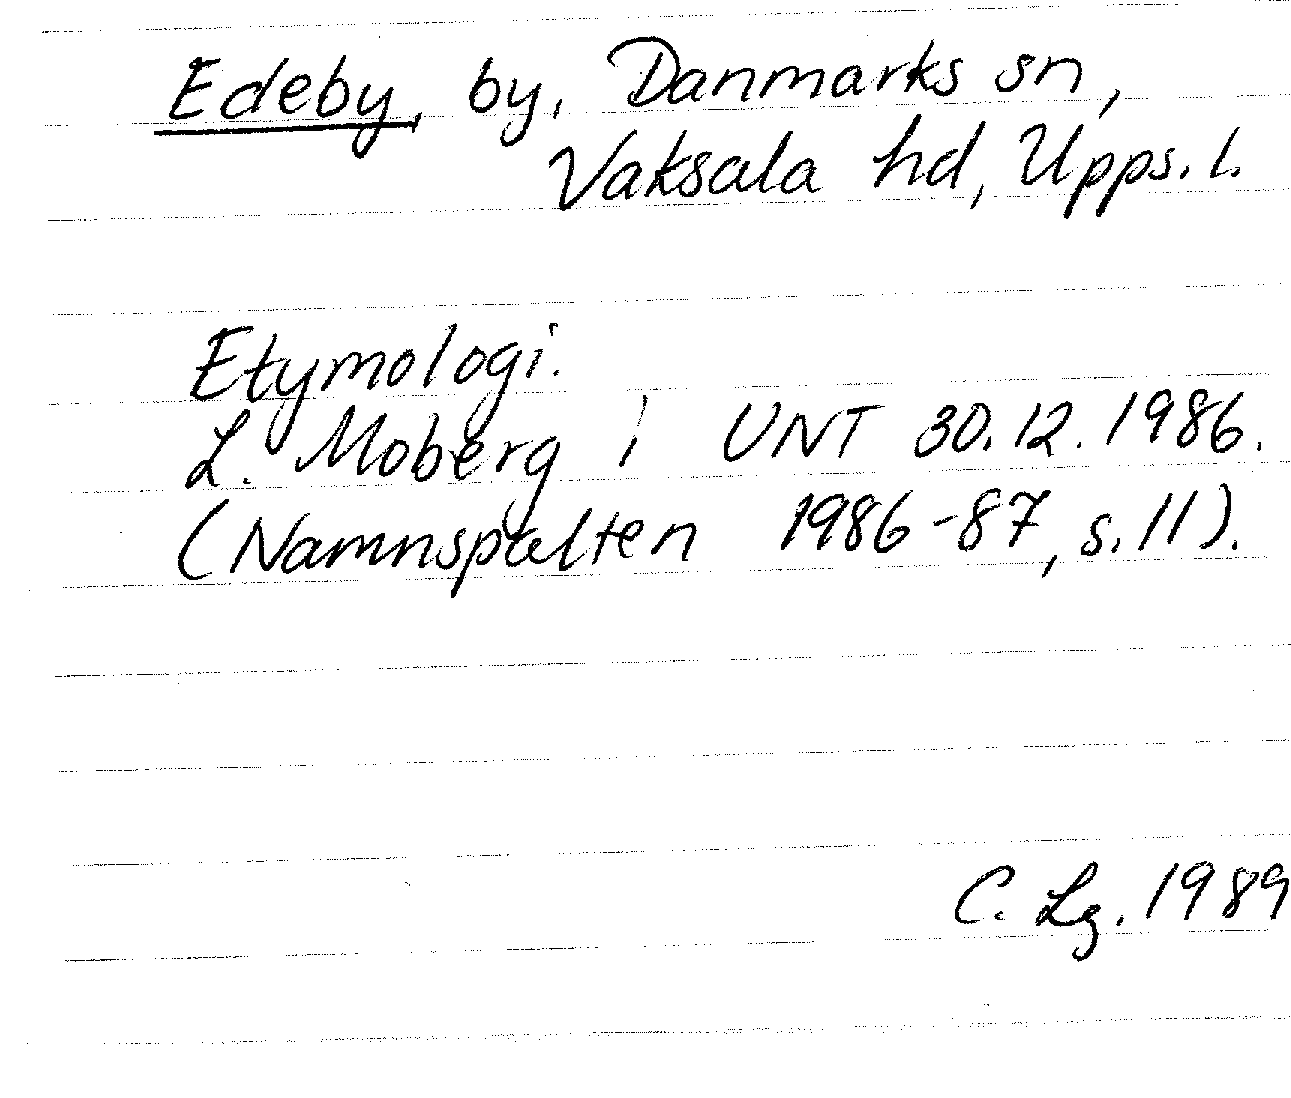 Edeby, by, Danmarks sn,
Vaksala hd, Upps. l.
Etymologi.
L. Moberg i UNT 30.12.1986.
(Namnspalten 1986-87, s. 11).
C. Lg. 1989